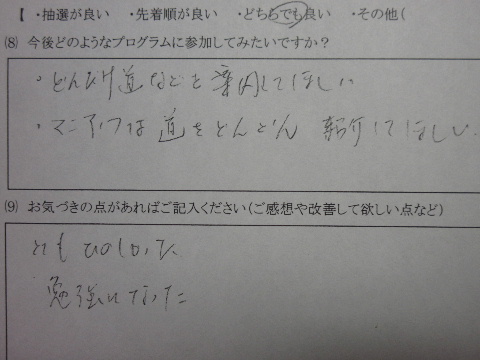 【 ・抽選が良い ・先着順が良い ・どちらでも良い ・その他(
(8) 今後どのようなプログラムに参加してみたいですか？
・どんびけ道などを案内してほしい
・マニアックな道をどんどん紹介してほしい。
(9) お気づきの点があればご記入ください(ご感想や改善して欲しい点など)
とてもたのしかった
勉強になった